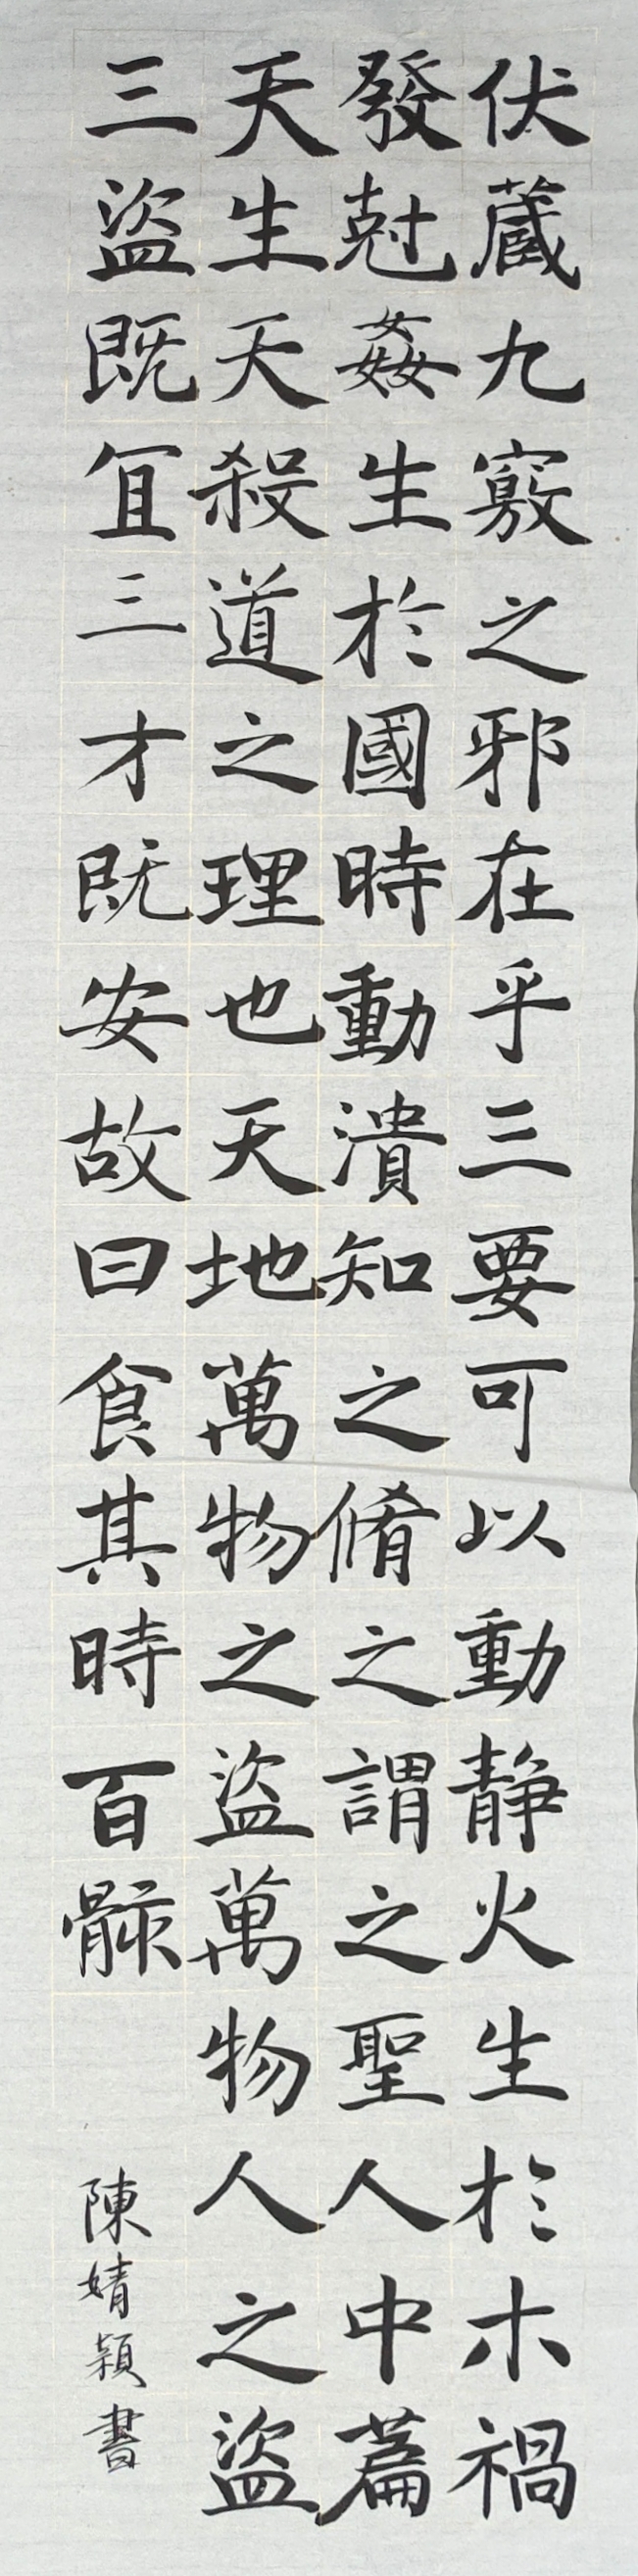 伏藏九竅之邪在乎三要可以動静火生於木禍
發尅姦生於國時動潰知之脩之謂之聖人中篇
天生天殺道之理也天地萬物之盜萬物人之盜
三盜既宜三才既安故曰食其時百骸
陳婧穎書